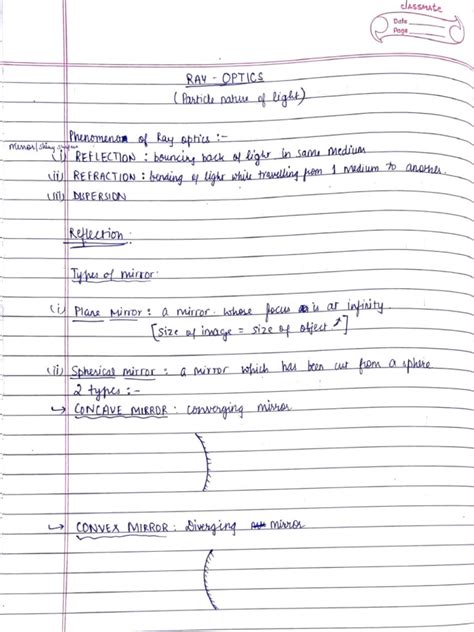 classmate
Date
Page
RAY - OPTICS
(Particle nature of light)
Phenomenon of Ray optics :-
Mirror/shiny surface
(i) REFLECTION : bouncing back of light in same medium
(ii) REFRACTION : bending of light while travelling from 1 medium to another.
(iii) DISPERSION
Reflection
Types of mirror
(i) Plane Mirror : a mirror whose focus is at infinity
[size of image = size of object]
(ii) Spherical mirror : a mirror which has been cut from a sphere
2 types :-
↳ CONCAVE MIRROR : converging mirror
↳ CONVEX MIRROR : Diverging mirror